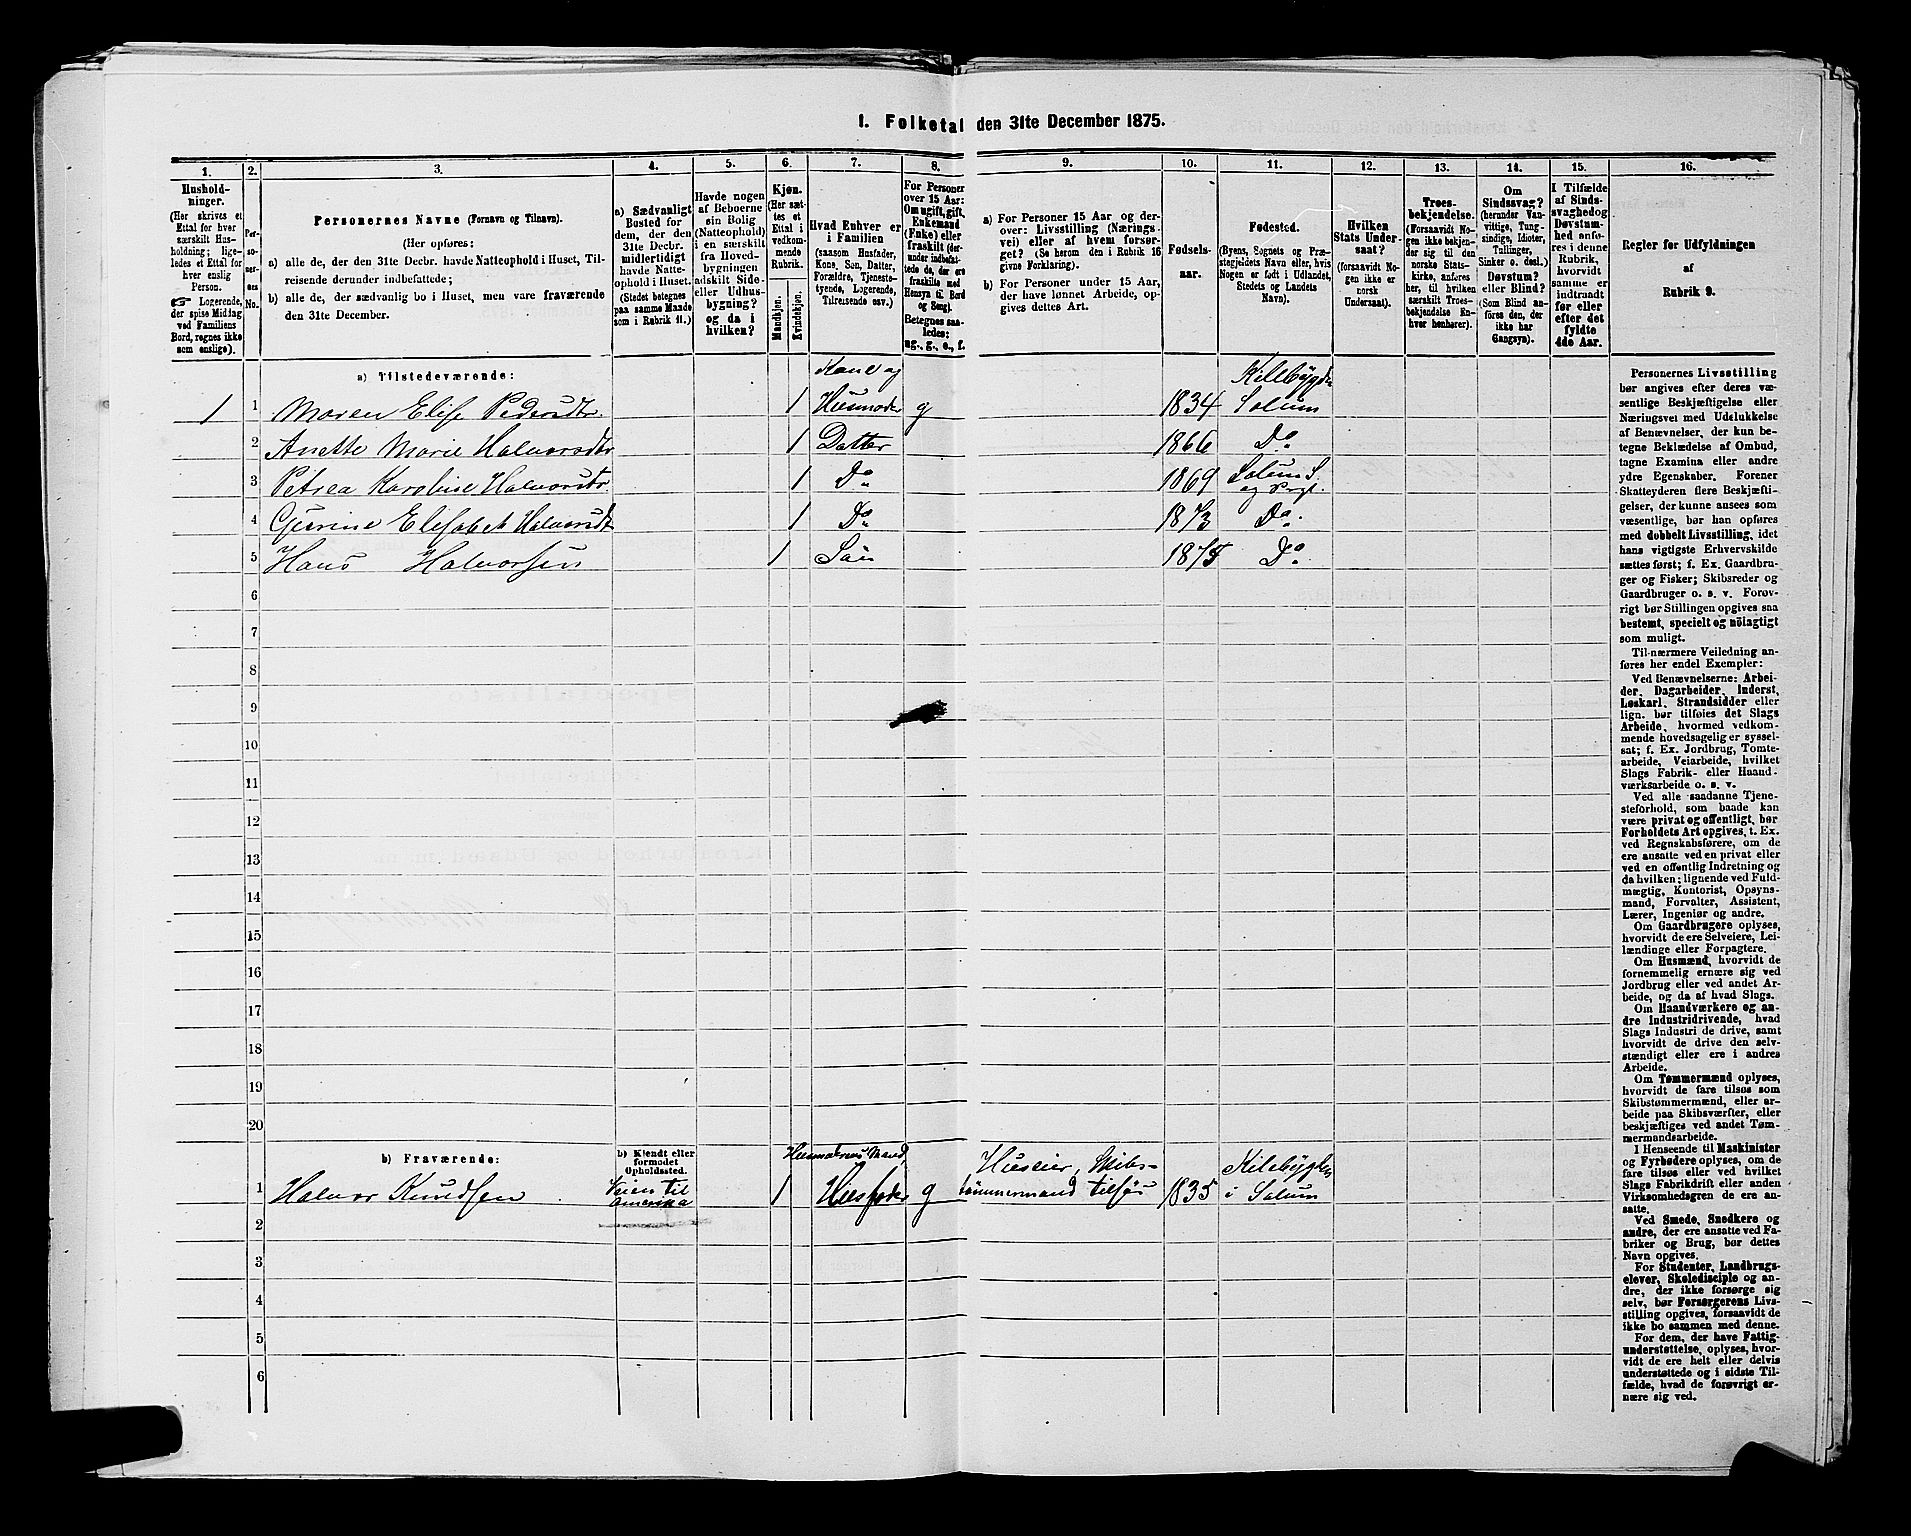 1. Folketal den 31te December 1875.
1.
Hushold-
ninger.
(Her skrives et
Ettal for hver
særskilt Hus-
holdning; lige-
ledes et Ettal for
hver enslig
Person.
☞ Logerende,
der spise Middag
ved Familiens
Bord, regnes ikke
som enslige).
2.
Per-
so-
ner-
nes
No.
3.
Personernes Navne (Fornavn og Tilnavn).
(Her opføres:
a) alle de, der den 31te Decbr. havde Natteophold i Huset, Til-
reisende derunder indbefattede;
b) alle de, der sædvanlig bo i Huset, men vare fraværende
den 31te December.
4.
a) Sædvanligt
Bosted for
dem, der den
31te Decbr.
midlertidigt
havde Natte-
ophold i Huset.
(Stedet betegnes
paa samme Maade
som i Rubrik 11.)
5.
Havde nogen
af Beboerne
sin Bolig
(Natteophold)
i en særskilt
fra Hoved-
bygningen
adskilt Side-
eller Udhus-
bygning?
og da i
hvilken?
6.
Kjøn.
(Her sæt-
tes et
Ettal i
vedkom-
mende
Rubrik.
Mandkjøn.
Kvindekjøn.
7.
Hvad Enhver er
i Familien
(saasom Husfader,
Kone, Søn, Datter,
Forældre, Tjeneste-
tyende, Logerende,
Tilreisende osv.)
8.
For Personer
over 15 Aar:
Om ugift, gift,
Enkemand
(Enke) eller
fraskilt (der-
under indbefat-
tede de, der ere
fraskilte med
Hensyn til Bord
og Seng).
Betegnes saa-
ledes:
ug., g., e., f.
9.
a) For Personer 15 Aar og der-
over: Livsstilling (Nærings-
vei) eller af hvem forsør-
get? (Se herom den i Rubrik 16
givne Forklaring).
b) For Personer under 15 Aar,
der have lønnet Arbeide, op-
gives dettes Art.
10.
Fødsels-
aar.
11.
Fødested.
(Byens, Sognets og Præ-
stegjeldets Navn eller, hvis
Nogen er født i Udlandet,
Stedets og Landets
Navn).
12.
Hvilken
Stats Under-
saat?
(forsaavidt No-
gen ikke er
norsk
Undersaat).
13.
Troes-
bekjendelse.
(Forsaavidt No-
gen ikke bekjen-
der sig til den
norske Stats-
kirke, anføres
her, til hvilken
særskilt Troes-
bekjendelse En-
hver henhører).
14.
Om
Sindssvag?
(herunder Van-
vittige, Tung-
sindige, Idioter,
Tullinger,
Sinker o. desl.)
Døvstum?
eller Blind?
(Som Blind an-
føres den, der
ikke har
Gangsyn).
15.
I Tilfælde
af Sinds-
svaghed og
Døvstum-
hed anfø-
res i denne
Rubrik,
hvorvidt
samme er
indtraadt
før eller
efter det
fyldte
4de Aar.
16.
Regler for Udfyldningen
af
Rubrik 9.
a) Tilstedeværende:
Kone og Kilebygden
1 1 Maren Elise Pedersdtr. 1 Husmoder g 1834 Solum
2 Anette Marie Halvorsdtr 1 Datter 1866 Do
3 Petrea Karoline Halvorsdtr. 1 Do 1869 Solum S. og Prgl.
4 Gurine Elisabet Halvorsdt 1 Do 1873 Do
5 Hans Halvorsen 1 Søn 1875 Do
6
7
8
9
10
11
12
13
14
15
16
17
18
19
20
b) Fraværende:
b) Kjendt eller
formodet
Opholdssted.
Husmoderens Mand, Huseier, Skibs- Kilebygden
1 Halvor Knudsen Veien til Amerika 1 Husfader g tømmermand tilsøs 1835 i Solum
2
3
4
5
6
Personernes Livsstilling
bør angives efter deres væ-
sentlige Beskjæftigelse eller
Næringsvei med Udelukkelse
af Benævnelser, der kun be-
tegne Beklædelse af Ombud,
tagne Examina eller andre
ydre Egenskaber. Forener
Skatteyderen flere Beskjæfti-
gelser, der kunne ansees som
væsentlige, bør han opføres
med dobbelt Livsstilling, idet
hans vigtigste Erhvervskilde
sættes først; f. Ex. Gaardbru-
ger og Fisker; Skibsreder og
Gaardbruger o. s. v. Forøv-
rigt bør Stillingen opgives saa
bestemt, specielt og nøiagtigt
som muligt.
Til nærmere Veiledning an-
føres her endel Exempler:
Ved Benævnelserne: Arbei-
der, Dagarbeider, Inderst,
Løskarl, Strandsidder eller
lign. bør tilføies det Slags
Arbeide, hvormed vedkom-
mende hovedsagelig er syssel-
sat; f. Ex. Jordbrug, Tomte-
arbeide, Veiarbeide, hvilket
Slags Fabrik- eller Haand-
værksarbeide o. s. v.
Ved alle saadanne Tjene-
steforhold, som baade kan
være privat og offentligt, bør
Forholdets Art opgives, t. Ex.
ved Regnskabsførere, om de
ere ansatte ved en privat eller
ved en offentlig Indretning og
da hvilken; lignende ved Fuld-
mægtig, Kontorist, Opsyns-
mand, Forvalter, Assistent,
Lærer, Ingeniør og andre.
Om Gaardbrugere oplyses,
hvorvidt de ere Selveiere, Lei-
lændinge eller Forpagtere.
Om Husmænd, hvorvidt de
fornemmelig ernære sig ved
Jordbrug eller ved andet Ar-
beide, og da af hvad Slags.
Om Haandværkere og an-
dre Industridrivende, hvad
Slags Industri de drive, samt
hvorvidt de drive den selv-
stændigt eller ere i andres
Arbeide.
Om Tømmermænd oplyses,
hvorvidt de fare tilsøs som
Skibstømmermænd, eller ar-
beide paa Skibsværfter, eller
beskjæftiges ved andet Tøm-
mermandsarbeide.
I Henseende til Maskinister
og Fyrbødere oplyses, om de
fare tilsøs eller ved hvilket
Slags Fabrikdrift eller anden
Virksomhedsgren de ere an-
satte.
Ved Smede, Snedkere og
andre, der ere ansatte ved Fa-
briker og Brug, bør dettes
Navn opgives.
For Studenter, Landbrugs-
elever, Skoledisciple og an-
dre, der ikke forsørge sig
selv, bør Forsørgerens Livs-
stilling opgives, forsaavidt de
ikke bo sammen med denne.
For dem, der have Fattig-
understøttelse, oplyses, hvor-
vidt de ere helt eller delvis
understøttede og i sidste Til-
fælde, hvad de forøvrigt er-
nære sig ved.